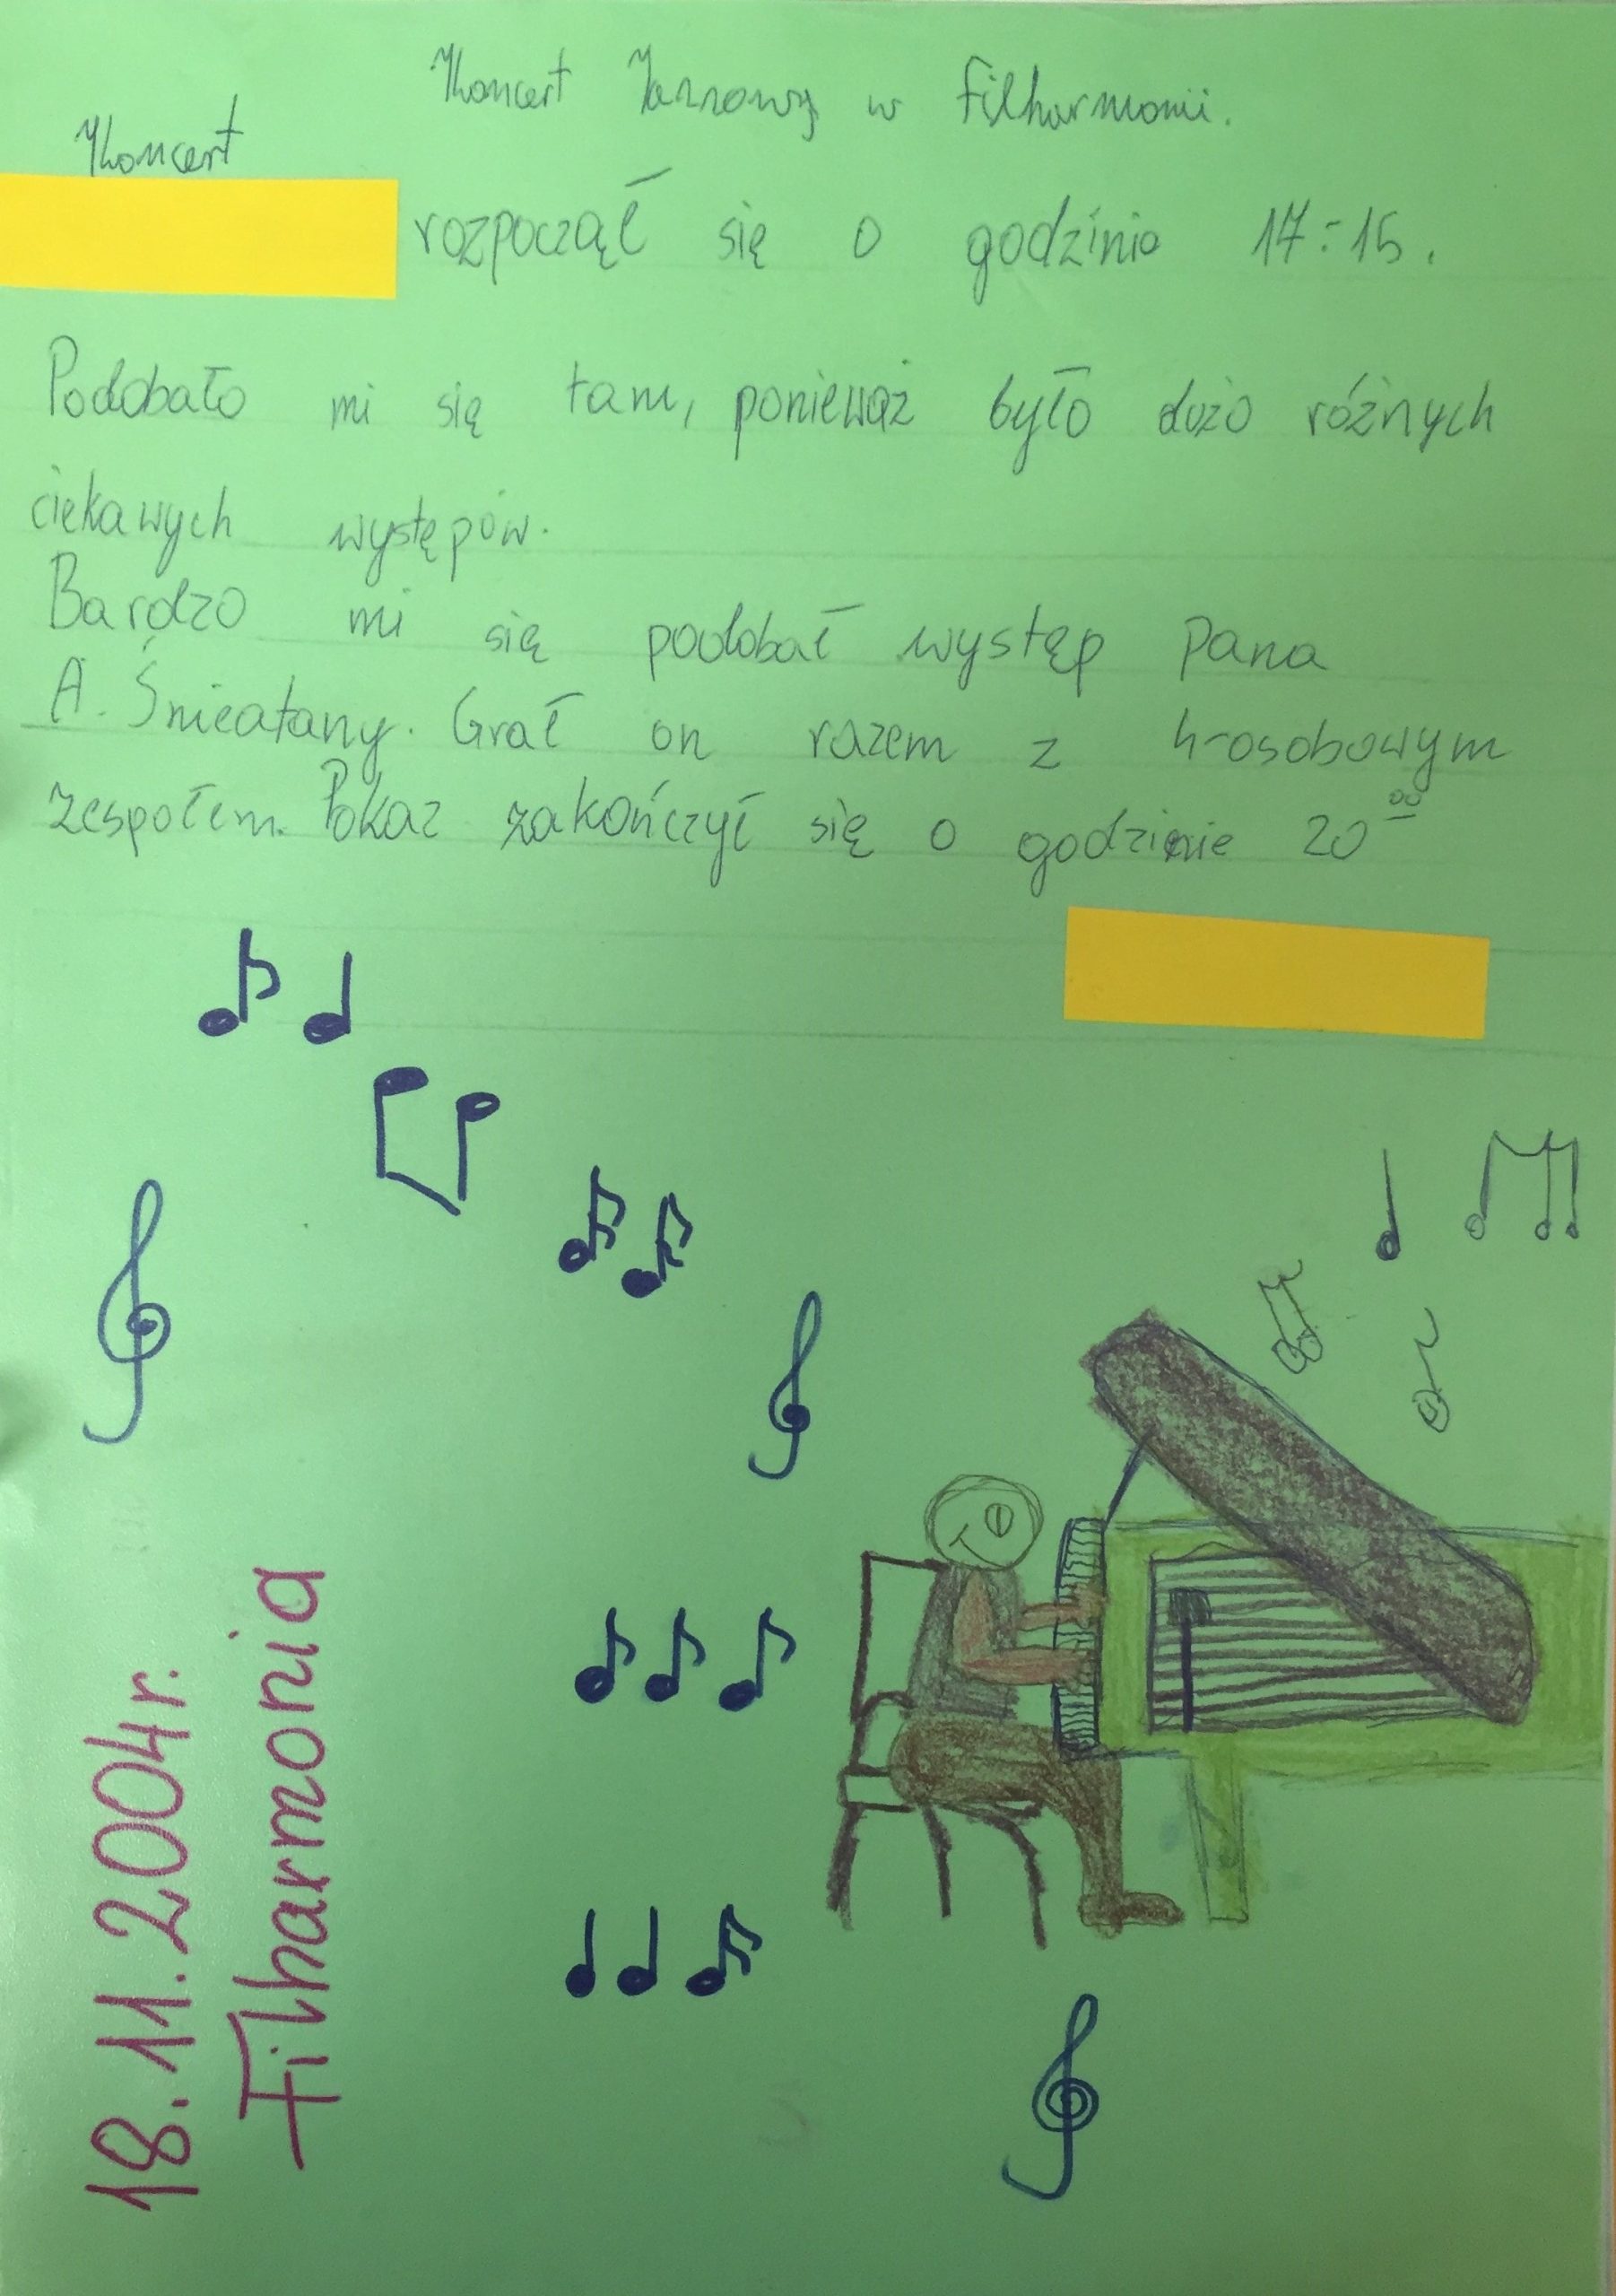 Koncert Jazzowy w filharmonii.
Koncert
rozpoczął się o godzinie 17:15.
Podobało mi się tam, ponieważ było dużo różnych
ciekawych występów.
Bardzo mi się podobał występ Pana
A. Śnieatany. Grał on razem z 4-osobowym
zespołem. Pokaz zakończył się o godzinie 20⁰⁰
18.11.2004r.
Filharmonia